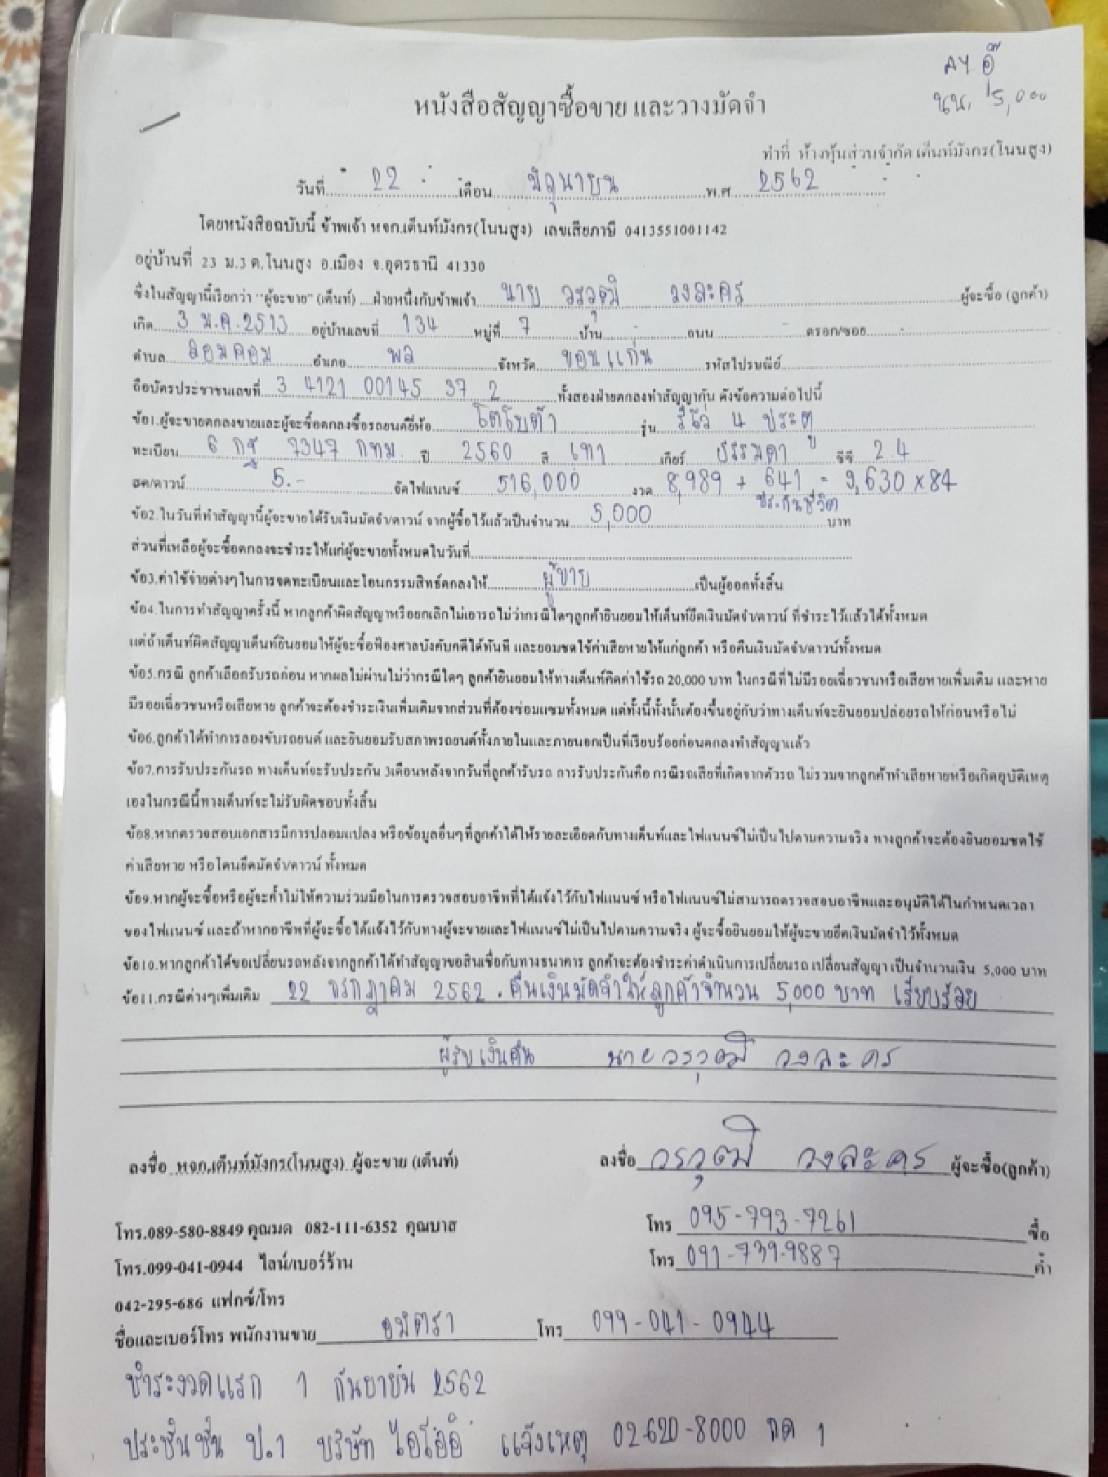 AY อี๊
นน. 5,000
หนังสือสัญญาซื้อขาย และวางมัดจำ
ทำที่ ห้างหุ้นส่วนจำกัด เต็นท์มังกร(โนนสูง)
วันที่ 22 เดือน มิถุนายน พ.ศ 2562
โดยหนังสือฉบับนี้ ข้าพเจ้า หจก.เต็นท์มังกร(โนนสูง) เลขเสียภาษี 0413551001142
อยู่บ้านที่ 23 ม.3 ต.โนนสูง อ.เมือง จ.อุดรธานี 41330
ซึ่งในสัญญานี้เรียกว่า "ผู้จะขาย" (เต็นท์) ....ฝ่ายหนึ่งกับข้าพเจ้า นาย วรวุฒิ วงละคร ผู้จะซื้อ (ลูกค้า)
เกิด 3 ม.ค. 2513 อยู่บ้านเลขที่ 134 หมู่ที่ 7 บ้าน ถนน ตรอก/ซอย
ตำบล ลอมคอม อำเภอ พล จังหวัด ขอนแก่น รหัสไปรษณีย์
ถือบัตรประชาชนเลขที่ 3 4121 00145 37 2 ทั้งสองฝ่ายตกลงทำสัญญากัน ดังข้อความต่อไปนี้
ข้อ1.ผู้จะขายตกลงขายและผู้จะซื้อตกลงซื้อรถยนต์ยี่ห้อ โตโยต้า รุ่น รีโว่ 4 ประตู
ทะเบียน 6 กฐ 7347 กทม ปี 2560 สี เทา เกียร์ ธรรมดา ซีซี 2.4
สด/ดาวน์ 5.- จัดไฟแนนซ์ 516,000 งวด 8,989 + 641 = 9,630 x 84
ประกันชีวิต
ข้อ2.ในวันที่ทำสัญญานี้ผู้จะขายได้รับเงินมัดจำ/ดาวน์ จากผู้ซื้อไว้แล้วเป็นจำนวน 5,000 บาท
ส่วนที่เหลือผู้จะซื้อตกลงจะชำระให้แก่ผู้จะขายทั้งหมดในวันที่
ข้อ3.ค่าใช้จ่ายต่างๆในการจดทะเบียนและโอนกรรมสิทธิ์ตกลงให้ ผู้ขาย เป็นผู้ออกทั้งสิ้น
ข้อ4.ในการทำสัญญาครั้งนี้ หากลูกค้าผิดสัญญาหรือยกเลิกไม่เอารถ ไม่ว่ากรณีใดๆลูกค้ายินยอมให้เต็นท์ยึดเงินมัดจำ/ดาวน์ ที่ชำระไว้แล้วได้ทั้งหมด
แต่ถ้าเต็นท์ผิดสัญญาเต็นท์ยินยอมให้ผู้จะซื้อฟ้องศาลบังคับคดีได้ทันที และยอมชดใช้ค่าเสียหายให้แก่ลูกค้า หรือคืนเงินมัดจำ/ดาวน์ทั้งหมด
ข้อ5.กรณี ลูกค้าเลือกรับรถก่อน หากผลไม่ผ่านไม่ว่ากรณีใดๆ ลูกค้ายินยอมให้ทางเต็นท์คิดค่าใช้รถ 20,000 บาท ในกรณีที่ไม่มีรอยเฉี่ยวชนหรือเสียหายเพิ่มเติม และหาย
มีรอยเฉี่ยวชนหรือเสียหาย ลูกค้าจะต้องชำระเงินเพิ่มเติมจากส่วนที่ต้องซ่อมแซมทั้งหมด แต่ทั้งนี้ทั้งนั้นต้องขึ้นอยู่กับว่าทางเต็นท์จะยินยอมปล่อยรถให้ก่อนหรือไม่
ข้อ6.ลูกค้าได้ทำการลองขับรถยนต์ และยินยอมรับสภาพรถยนต์ทั้งภายในและภายนอกเป็นที่เรียบร้อยก่อนตกลงทำสัญญาแล้ว
ข้อ7.การรับประกันรถ ทางเต็นท์จะรับประกัน 3เดือนหลังจากวันที่ลูกค้ารับรถ การรับประกันคือ กรณีรถเสียที่เกิดจากตัวรถ ไม่รวมจากลูกค้าทำเสียหายหรือเกิดอุบัติเหตุ
เองในกรณีนี้ทางเต็นท์จะไม่รับผิดชอบทั้งสิ้น
ข้อ8.หากตรวจสอบเอกสารมีการปลอมแปลง หรือข้อมูลอื่นๆที่ลูกค้าได้ให้รายละเอียดกับทางเต็นท์และไฟแนนซ์ไม่เป็นไปตามความจริง ทางลูกค้าจะต้องยินยอมชดใช้
ค่าเสียหาย หรือโดนยึดมัดจำ/ดาวน์ ทั้งหมด
ข้อ9.หากผู้จะซื้อหรือผู้จะค้ำไม่ให้ความร่วมมือในการตรวจสอบอาชีพที่ได้แจ้งไว้กับไฟแนนซ์ หรือไฟแนนซ์ไม่สามารถตรวจสอบอาชีพและอนุมัติได้ในกำหนดเวลา
ของไฟแนนซ์ และถ้าหากอาชีพที่ผู้จะซื้อได้แจ้งไว้กับทางผู้จะขายและไฟแนนซ์ไม่เป็นไปตามความจริง ผู้จะซื้อยินยอมให้ผู้จะขายยึดเงินมัดจำไว้ทั้งหมด
ข้อ10.หากลูกค้าได้ขอเปลี่ยนรถหลังจากลูกค้าได้ทำสัญญาขอสินเชื่อกับทางธนาคาร ลูกค้าจะต้องชำระค่าดำเนินการเปลี่ยนรถ เปลี่ยนสัญญา เป็นจำนวนเงิน 5,000 บาท
ข้อ11.กรณีต่างๆเพิ่มเติม 22 กรกฎาคม 2562 . คืนเงินมัดจำให้ลูกค้าจำนวน 5,000 บาท เรียบร้อย
ผู้รับเงินคืน นายวรวุฒิ วงละคร
ลงชื่อ หจก.เต็นท์มังกร(โนนสูง) ผู้จะขาย (เต็นท์) ลงชื่อ วรวุฒิ วงละคร ผู้จะซื้อ(ลูกค้า)
โทร.089-580-8849 คุณมด 082-111-6352 คุณบาส โทร 095-793-7261 ซื้อ
โทร.099-041-0944 ไลน์/เบอร์ร้าน โทร 091-739-9887 ค้ำ
042-295-686 แฟกซ์/โทร
ชื่อและเบอร์โทร พนักงานขาย ขมิตรา โทร 099-041-0944
ชำระงวดแรก 1 กันยายน 2562
ประชั้น ชั้น ป.1 บริษัท ไอโออิ แจ้งเหตุ 02-620-8000 กด 1